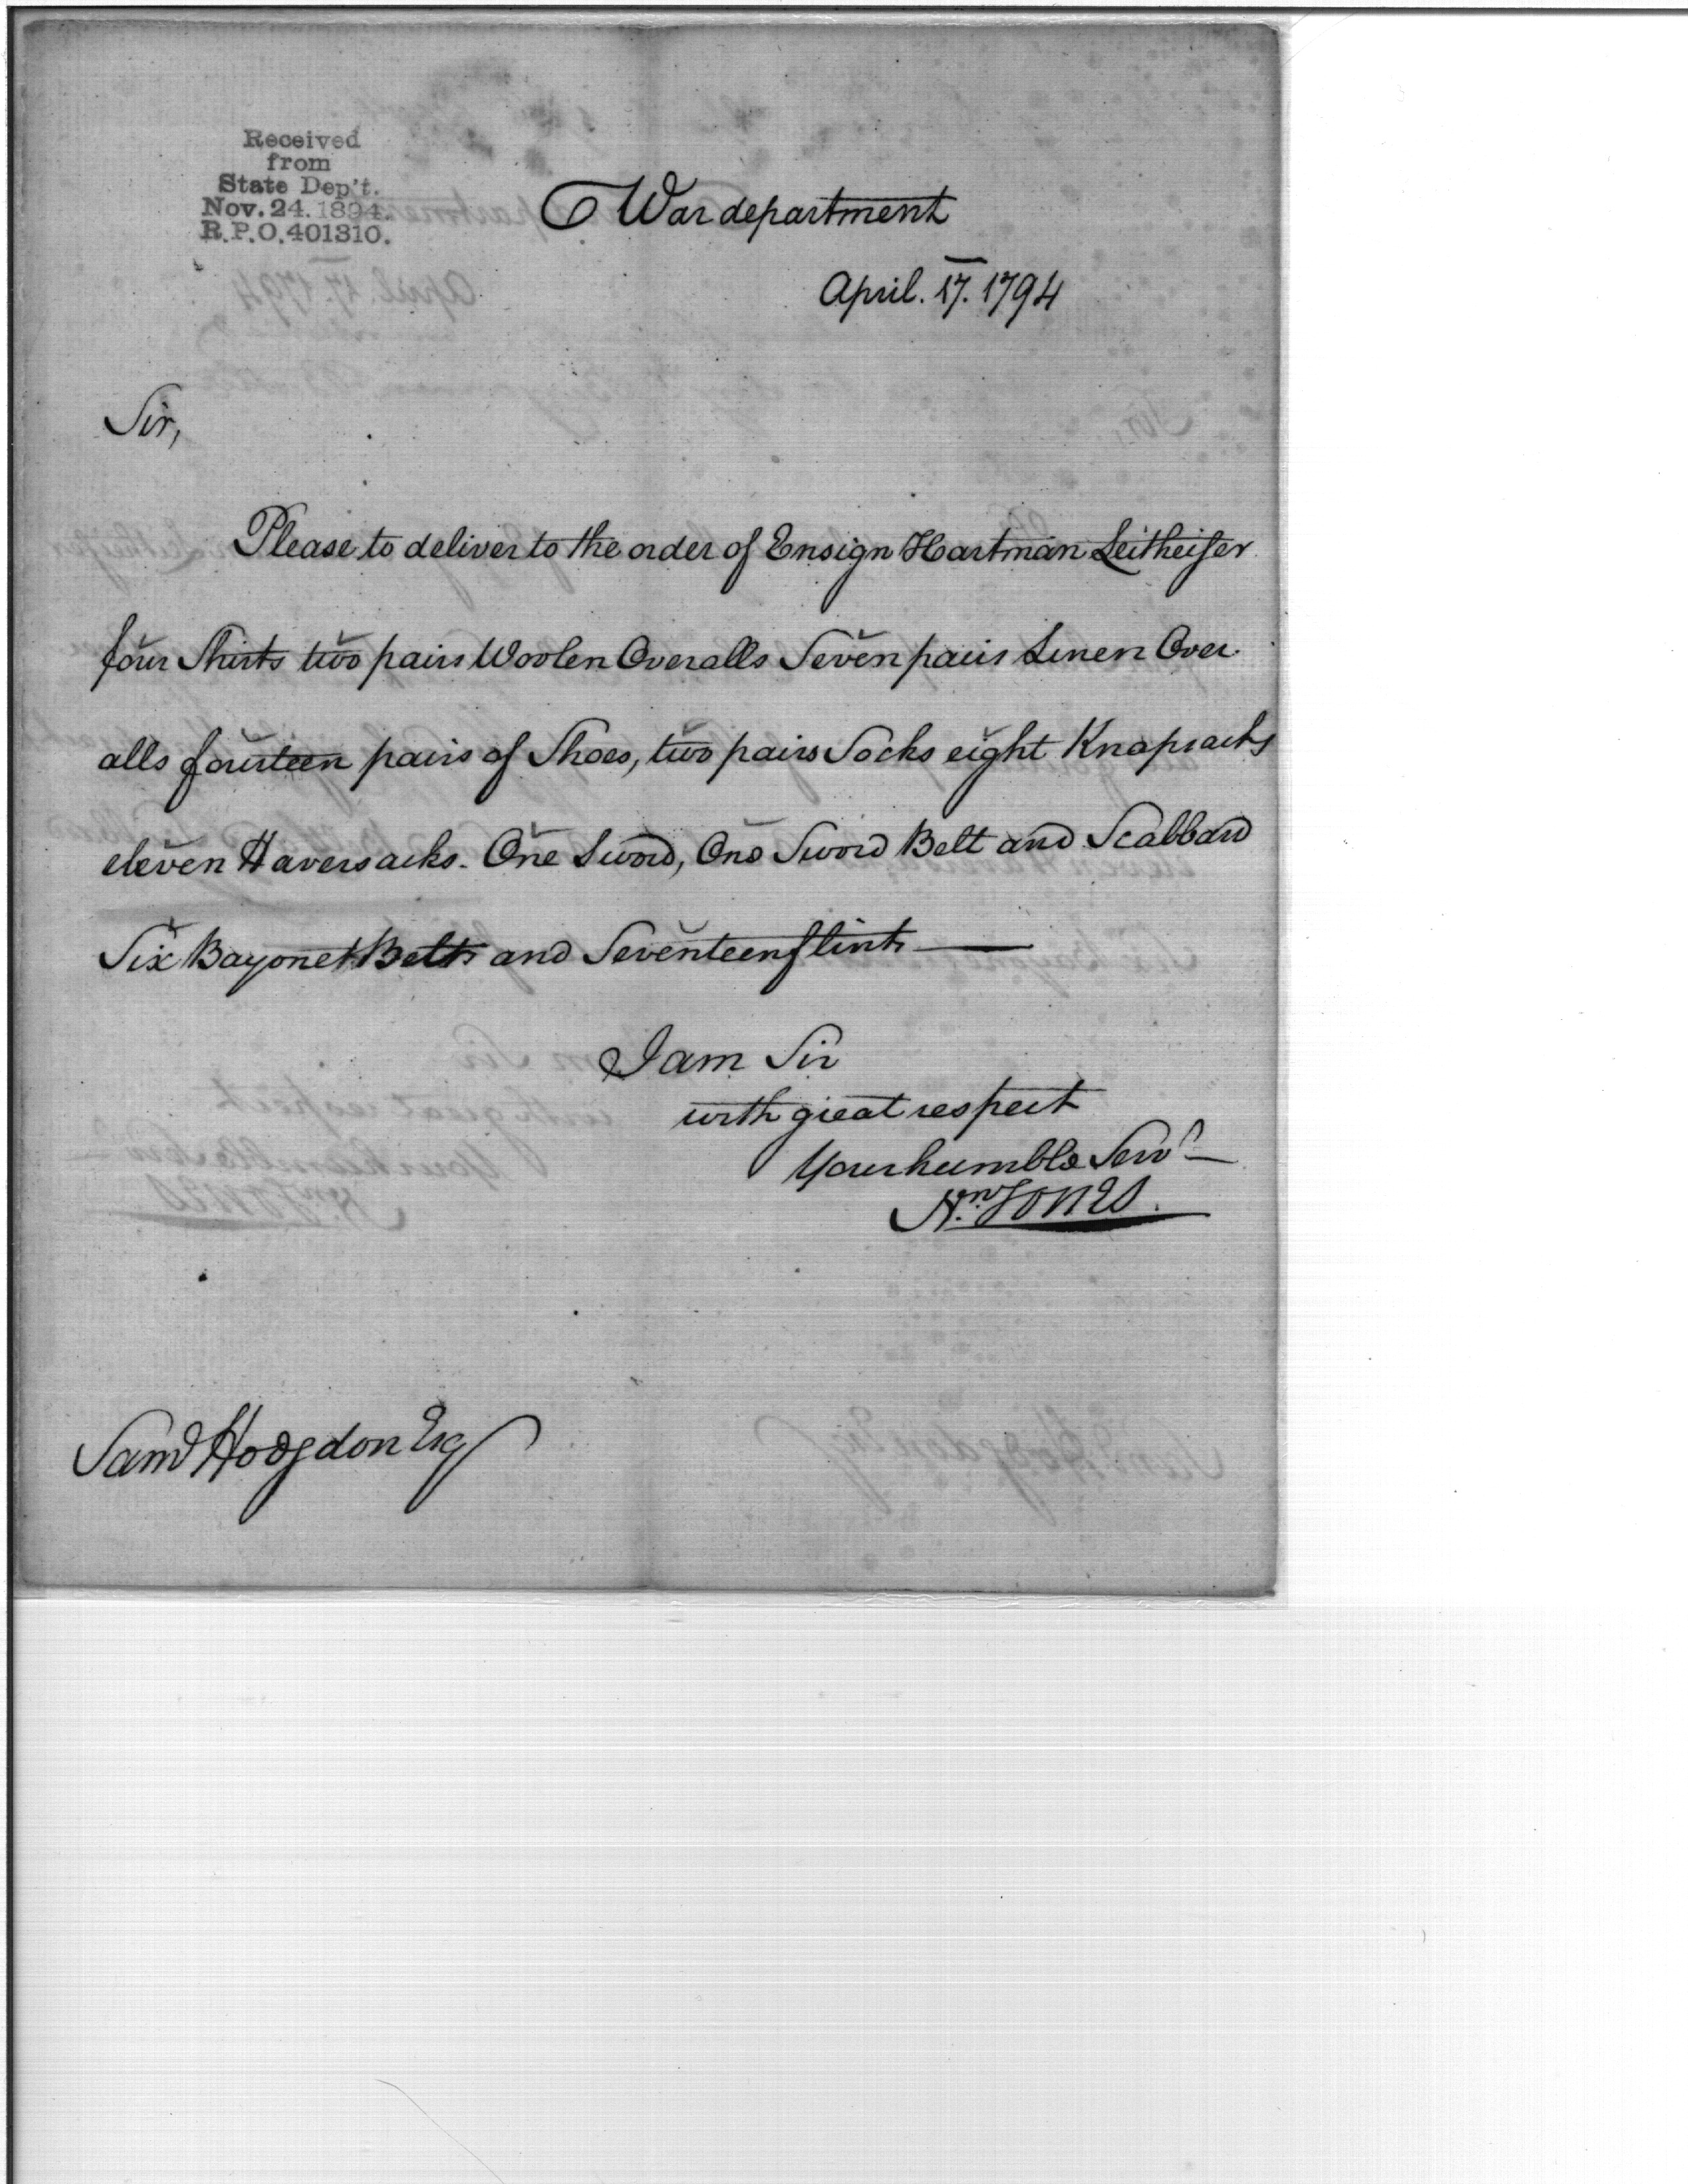 Received
from
State Dep't.
Nov. 24. 1894.
R.P.O. 401310.
War department
April. 17. 1794
Sir,
Please to deliver to the order of Ensign Hartman Leitheiser
four Shirts two pairs Woolen Overalls Seven pairs Linen Over
alls fourteen pairs of Shoes, two pairs Socks eight Knapsacks
eleven Haversacks. One Sword, One Sword Belt and Scabbard
Six Bayonet Belts and Seventeen flints
I am Sir
with great respect
Your humble Servt
Hn. Jones.
Saml Hodgdon Esq